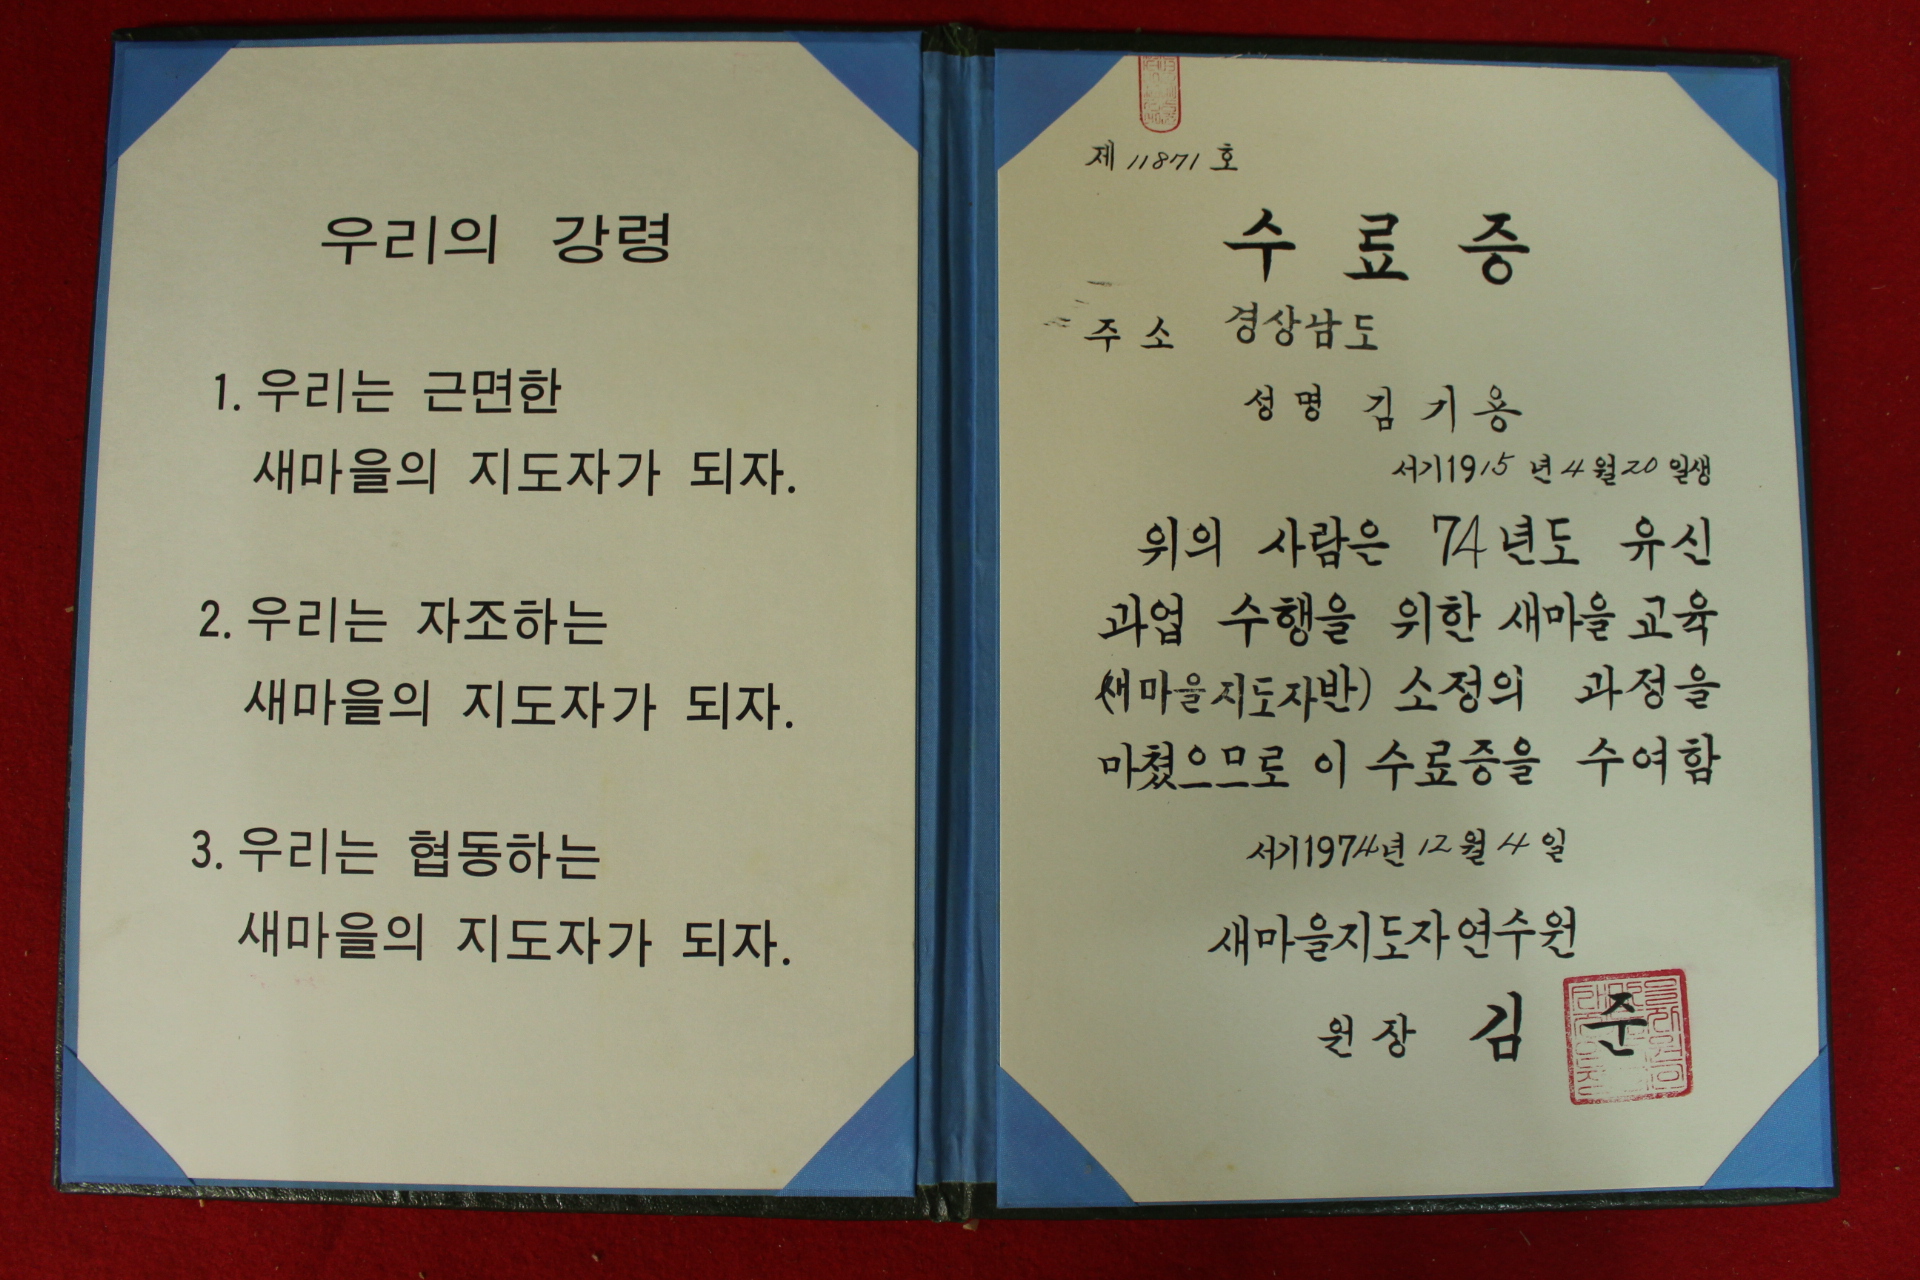 우리의 강령
1. 우리는 근면한
새마을의 지도자가 되자.
2. 우리는 자조하는
새마을의 지도자가 되자.
3. 우리는 협동하는
새마을의 지도자가 되자.
제 11871 호
수료증
주소 경상남도
성명 김기용
서기1915년 4월 20일생
위의 사람은 74년도 유신
과업 수행을 위한 새마을 교육
(새마을지도자반) 소정의 과정을
마쳤으므로 이 수료증을 수여함
서기1974년 12월 4일
새마을지도자연수원
원장 김준